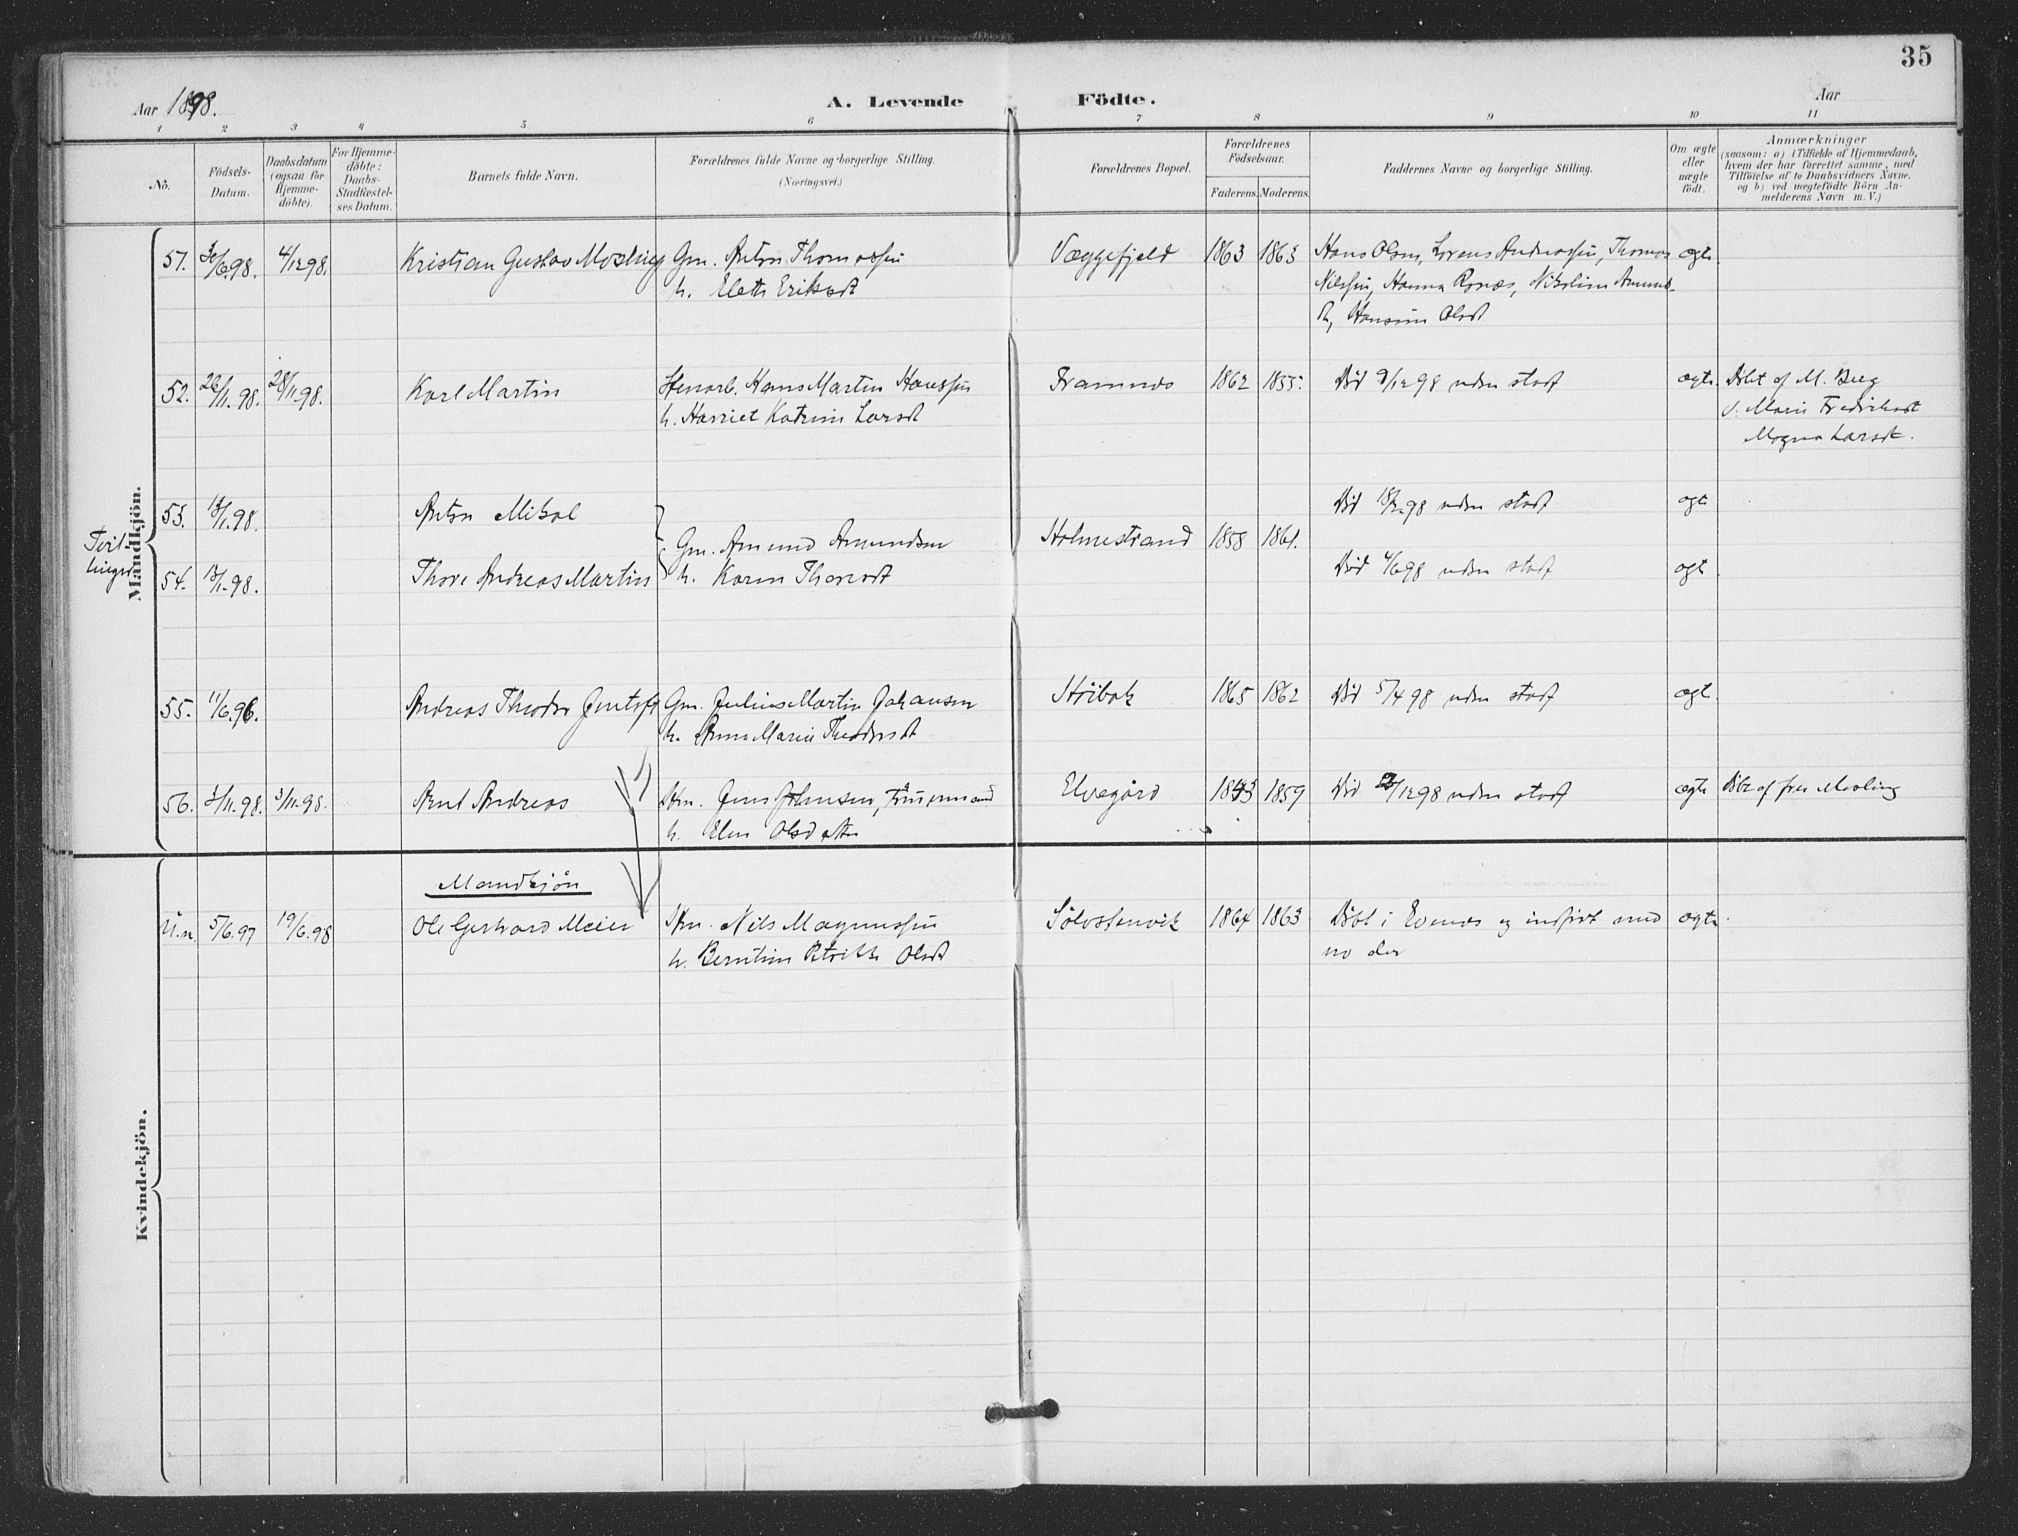 35
Aar 1898.
A. Levende Födte.
Aar
1 2 3 4 5 6 7 8 9 10 11
No.
Födsels-Datum.
Daabsdatum (ogsaa for Hjemme-döbte).
For Hjemme-döbte: Daabs-Stadfæstel-ses Datum.
Barnets fulde Navn.
Forældrenes fulde Navne og borgerlige Stilling.
(Næringsvei.)
Forældrenes Bopæl.
Forældrenes Födselsaar.
Faderens. Moderens.
Faddernes Navne og borgerlige Stilling.
Om ægte eller uægte födt.
Anmærkninger
(saasom: a) i Tilfælde af Hjemmedaab,
hvem der har forrettet samme, med
Tilföielse af to Daabsvidners Navne,
og b) ved uægtefödte Börn An-
melderens Navn m. V.)
Mandkjön.
51. 30/6.98. 4/12 98. Kristian Gustav Gm. Anton Thomassen Væggefjeld 1863 1863 Hans Olsen, Lorens Andreassen, Thomas ægte
h. Eleth Eriksdt Nilssen, Hanna Rønæs, Nikoline Amund-
dt, Hansine Olsdt
52. 26/11.98. 28/11.98. Karl Martin Stenarb. Hans Martin Hanssen Framnes 1862 1855. Död 9/12 98 uden stadf ægte Döbt af M. Berg
h. Harriet Katrine Larsdt v. Marie Fredriksdt
Magna Larsdt.
Tvil-
linger
53. 13/1.98. Anton Mikal Död 18/2.98 uden stadf ægte
Gm. Amund Amundsen Holmestrand 1858 1861.
54. 13/1.98. Thore Andreas Martin h. Karen Thoresdt Död 4/6 98 uden stadf ægte
55. 11/6.96. Andreas Theodor Gm. Julius Martin Johansen Stribolt 1865 1862 Död 5/4 98 uden stadf ægte.
h. Anna Marie Theodorsdt
56. 1/11.98. 3/11.98. Arnt Andreas Stm. Jens Johnsen, Tömmermand Elvegård 1859 Död /12 98 uden stadf ægte Döbt af fru Mosling
h. Elen Olsdatter
Kvindekjön.
Mandkjön
U.n. 5/6.97 19/6.98 Ole Gerhard Meier Stm. Nils Magnussen Sølvstenvik 1864 1863 Döbt i Evenes og indført med ægte
h. Berntine Petrikke Olsdt no der